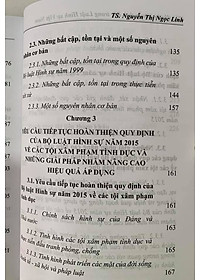 TS. Nguyễn Thị Ngọc Linh
2.3. Những bất cập, tồn tại và một số nguyên
nhân cơ bản
135
2.3.1. Những bất cập, tồn tại trong quy định của
Bộ luật Hình sự năm 1999
135
2.3.2. Những bất cập, tồn tại trong thực tiễn
xét xử
136
2.3.3. Một số nguyên nhân cơ bản
Chương 3
YÊU CẦU TIẾP TỤC HOÀN THIỆN QUY ĐỊNH
CỦA BỘ LUẬT HÌNH SỰ NĂM 2015
VỀ CÁC TỘI XÂM PHẠM TÌNH DỤC VÀ
NHỮNG GIẢI PHÁP NHẰM NÂNG CAO
HIỆU QUẢ ÁP DỤNG
161
3.1. Yêu cầu tiếp tục hoàn thiện quy định của
Bộ luật Hình sự năm 2015 về các tội xâm phạm
tình dục
161
3.1.1. Chính sách hình sự của Đảng và
161
3.1.2. Tình hình các tội xâm phạm tình dục và
thực tiễn đấu tranh phòng, chống
165
3.1.3. Tình hình phát triển các mặt của đời sống
kinh tế - xã hội và pháp luật
167